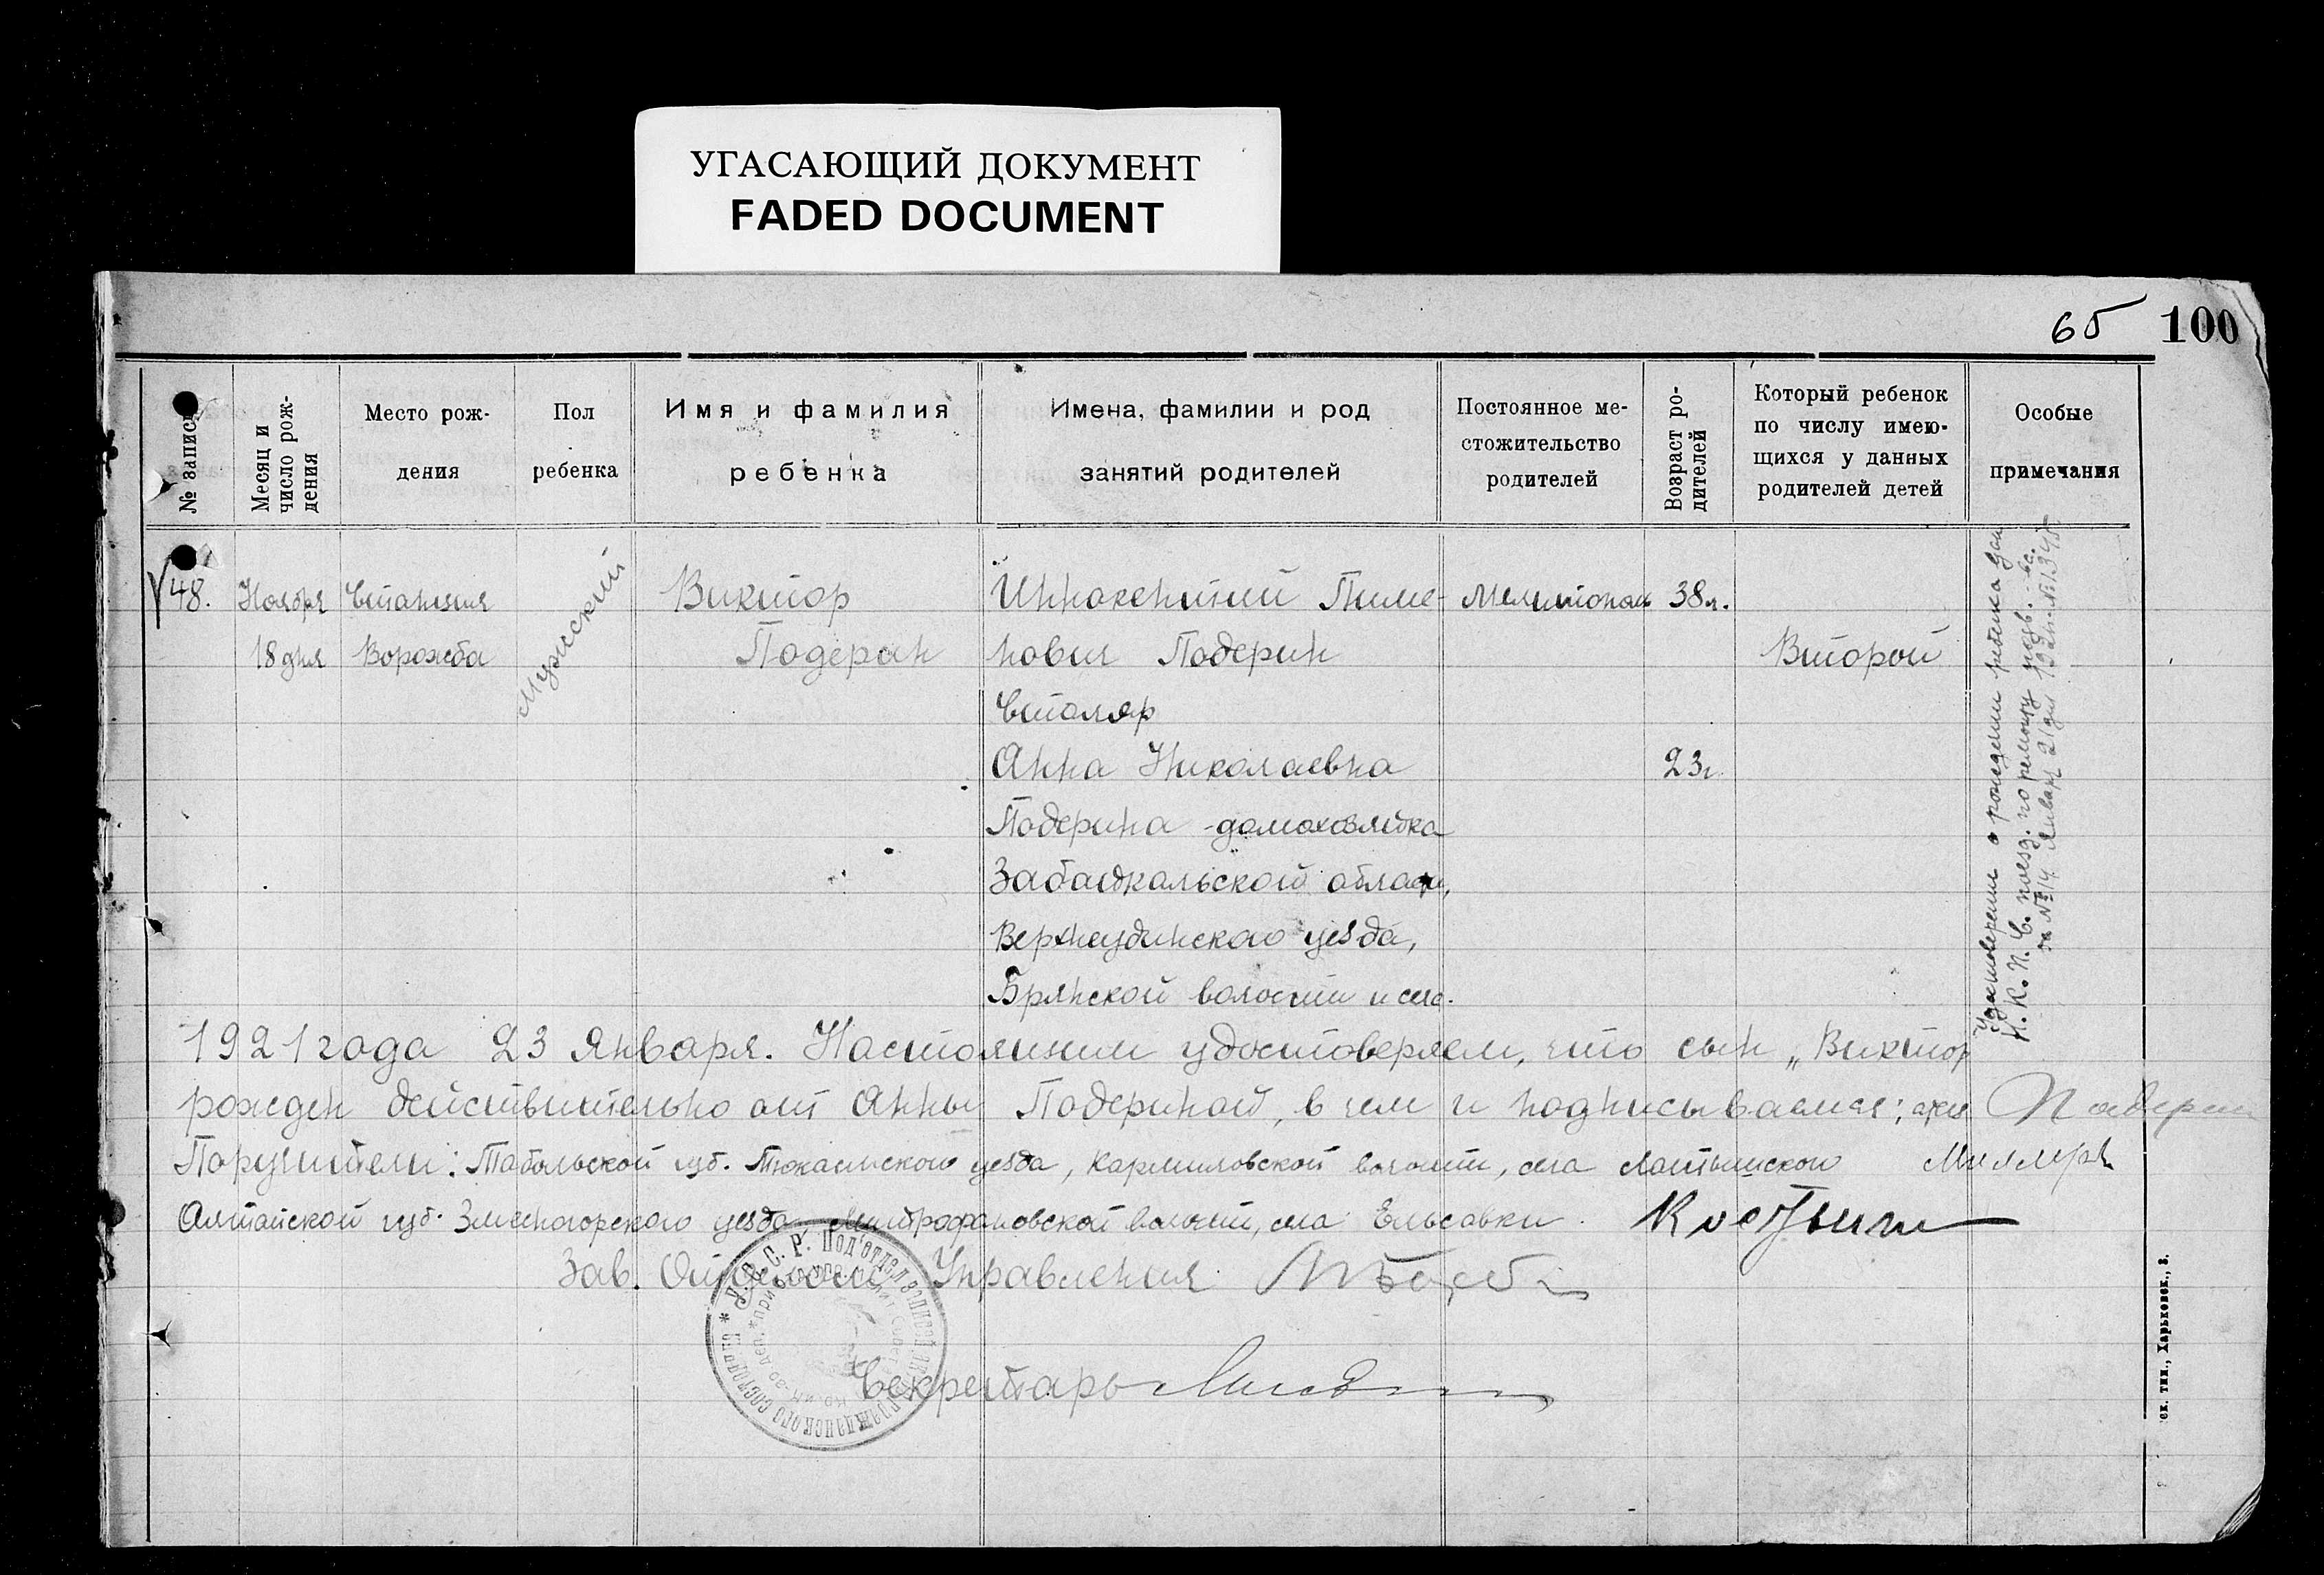 УГАСАЮЩИЙ ДОКУМЕНТ
FADED DOCUMENT
65 100
№ записи
Месяц и число рож-
дения
Место рож-
дения
Пол
ребенка
Имя и фамилия
ребенка
Имена, фамилии и род
занятий родителей
Постоянное ме-
стожительство
родителей
Возраст ро-
дителей
Который ребенок
по числу имею-
щихся у данных
родителей детей
Особые
примечания
48. Ноября Станция Мужской Виктор Иннокентий Пиме- Мелитополь 38 л.
18 дня Ворожба Подерин нович Подерин Второй
Столяр
Анна Николаевна 23 г.
Подерина - домохозяйка
Забайкальской области,
Верхнеудинского уезда,
Брянской волости и села.
Удостоверение о рождении ребенка
Н. К. П. С. поезд. по ремонту
за № 14 Января 21 дня 192 г. № 1345
1921 года 23 Января. Настоящим удостоверяем, что сын „Виктор
рожден действительно от Анны Подериной, в чем и подписываемся; Подерин
Поручители: Тобольской губ. Тюкалинского уезда, Кармиловской волости, села Миллер
Алтайской губ. Змеиногорского уезда Митрофановской волости, села Ельсавки Костын
Зав. Отделом Управления
У.С.С.Р. Под'отдел записей актов гражданского состояния
Секретарь
ск. тип., Харьковск., 8.